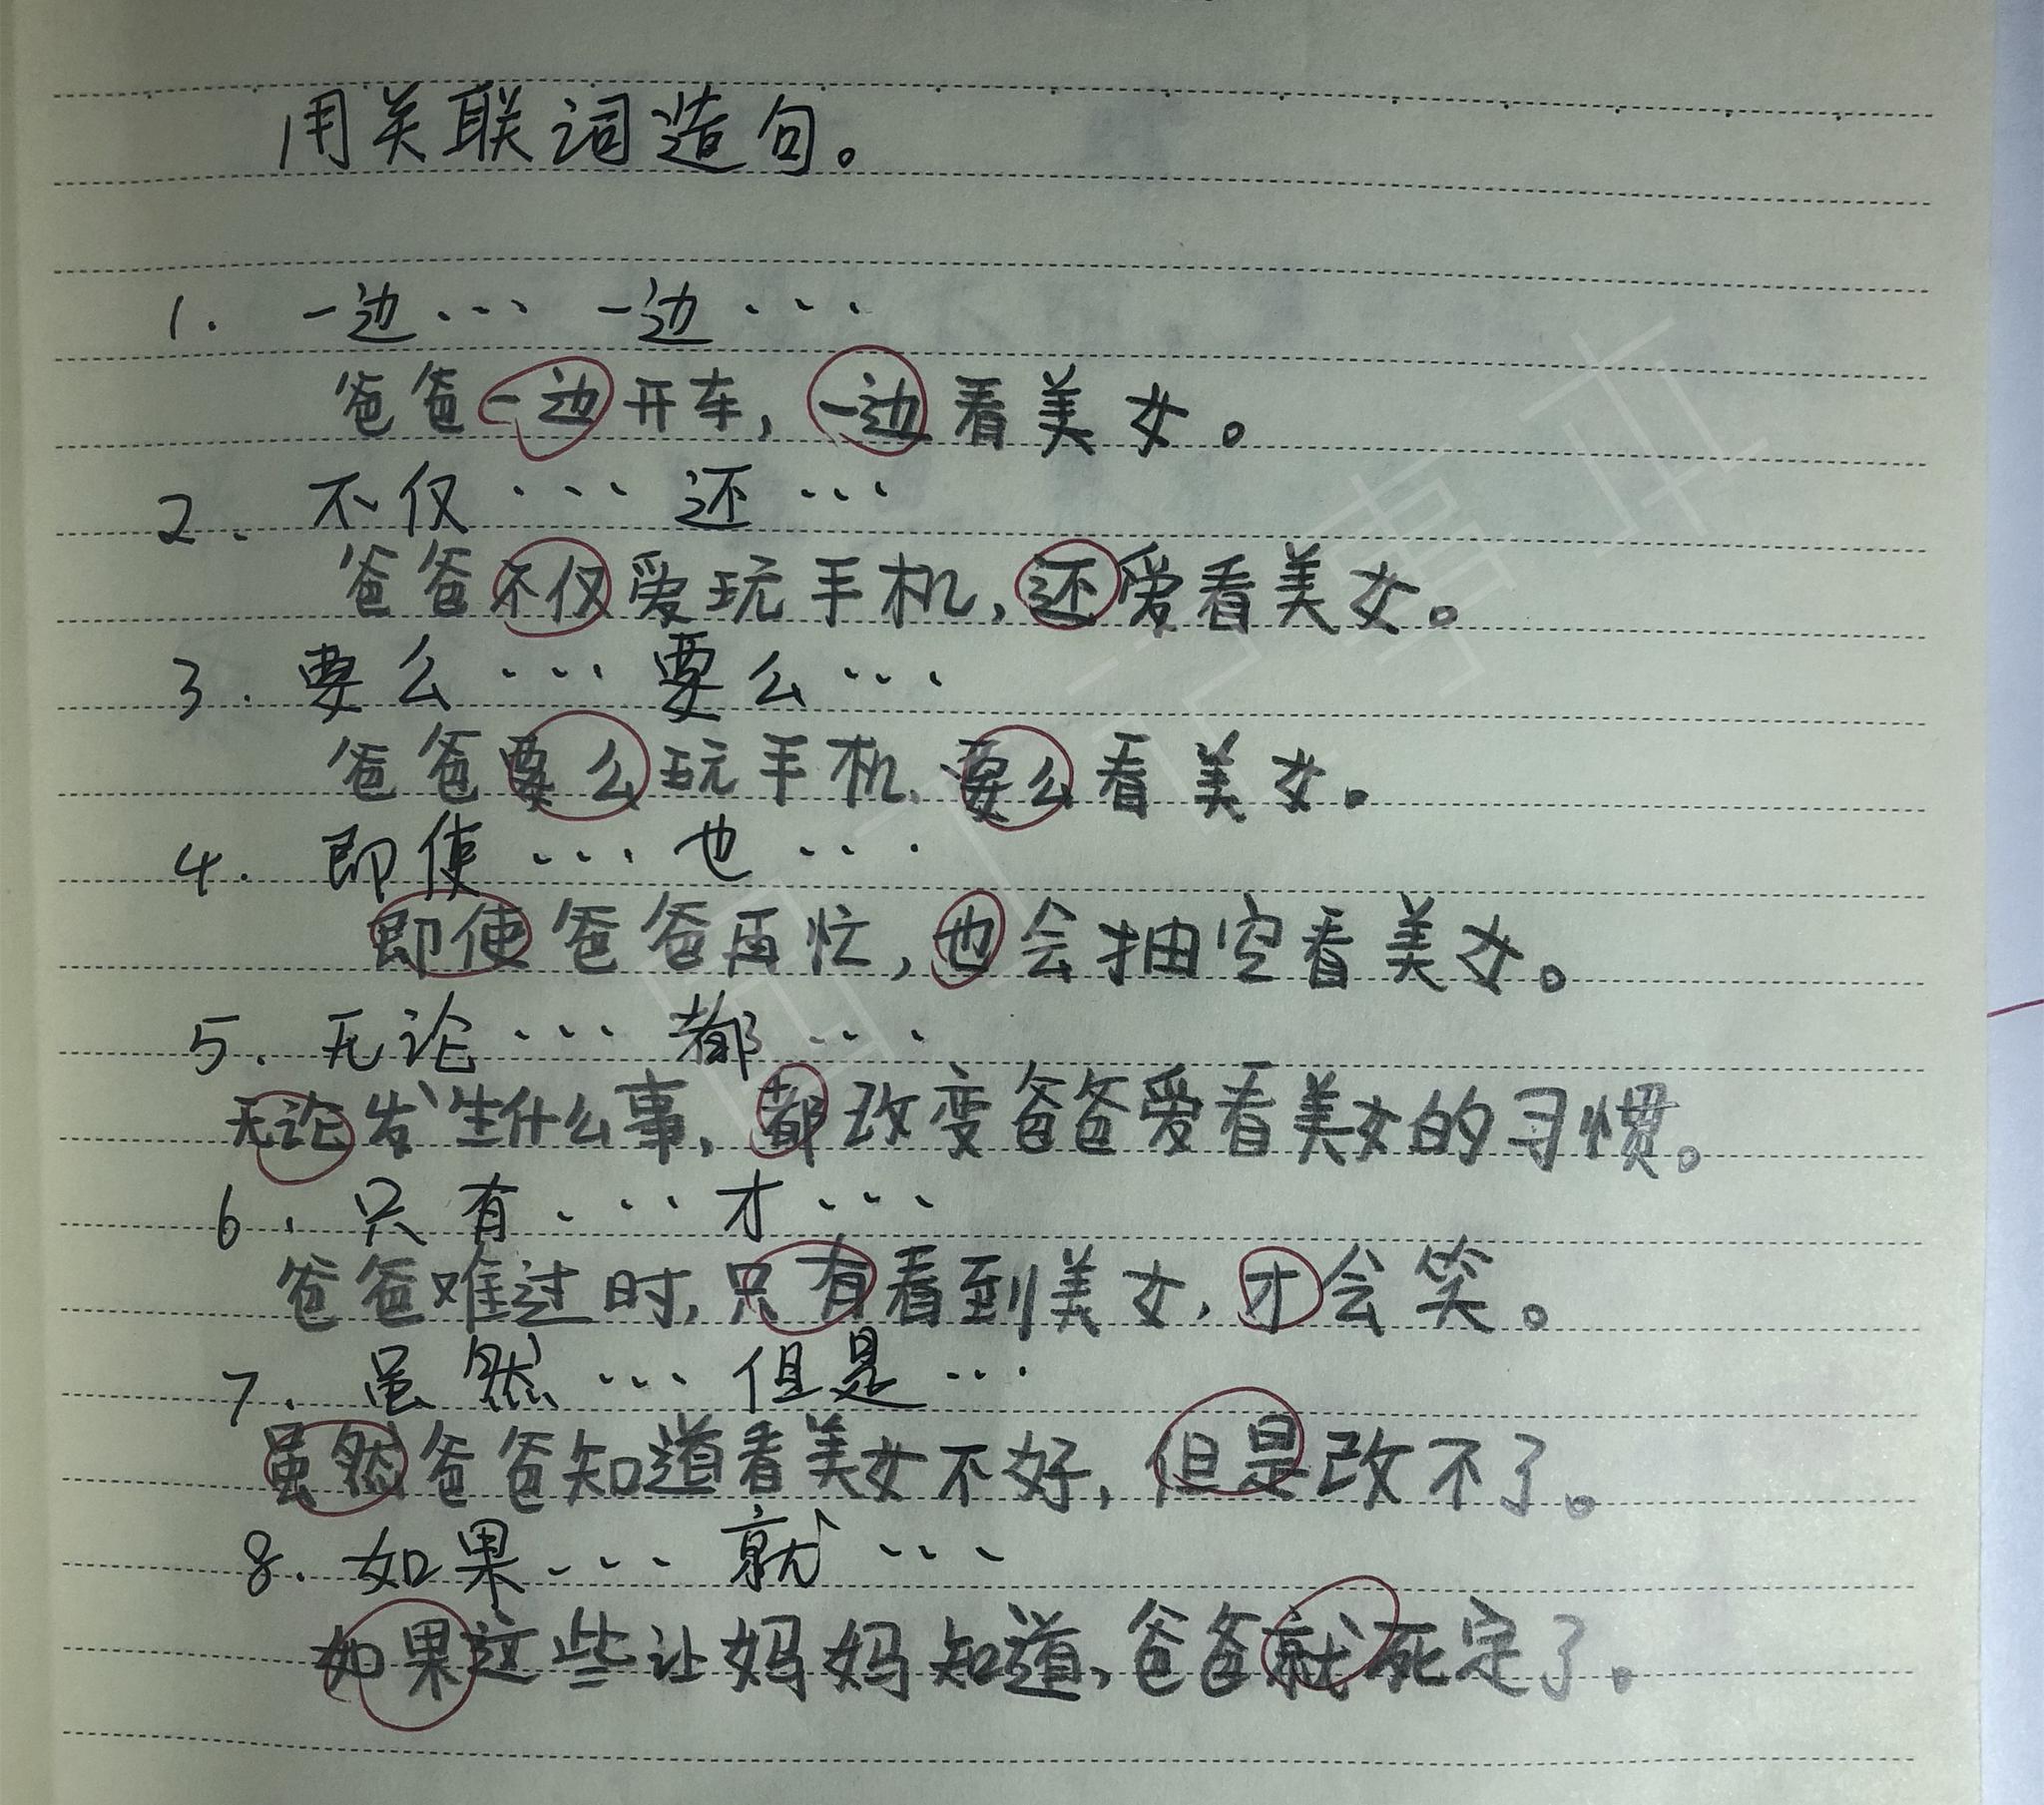 用关联词造句。
1. 一边… 一边…
爸爸一边开车，一边看美女。
2. 不仅… 还…
爸爸不仅爱玩手机，还爱看美女。
3. 要么… 要么…
爸爸要么玩手机，要么看美女。
4. 即使… 也…
即使爸爸再忙，也会抽空看美女。
5. 无论… 都…
无论发生什么事，都改变爸爸爱看美女的习惯。
6. 只有… 才…
爸爸难过时，只有看到美女，才会笑。
7. 虽然… 但是…
虽然爸爸知道看美女不好，但是改不了。
8. 如果… 就…
如果这些让妈妈知道，爸爸就死定了。